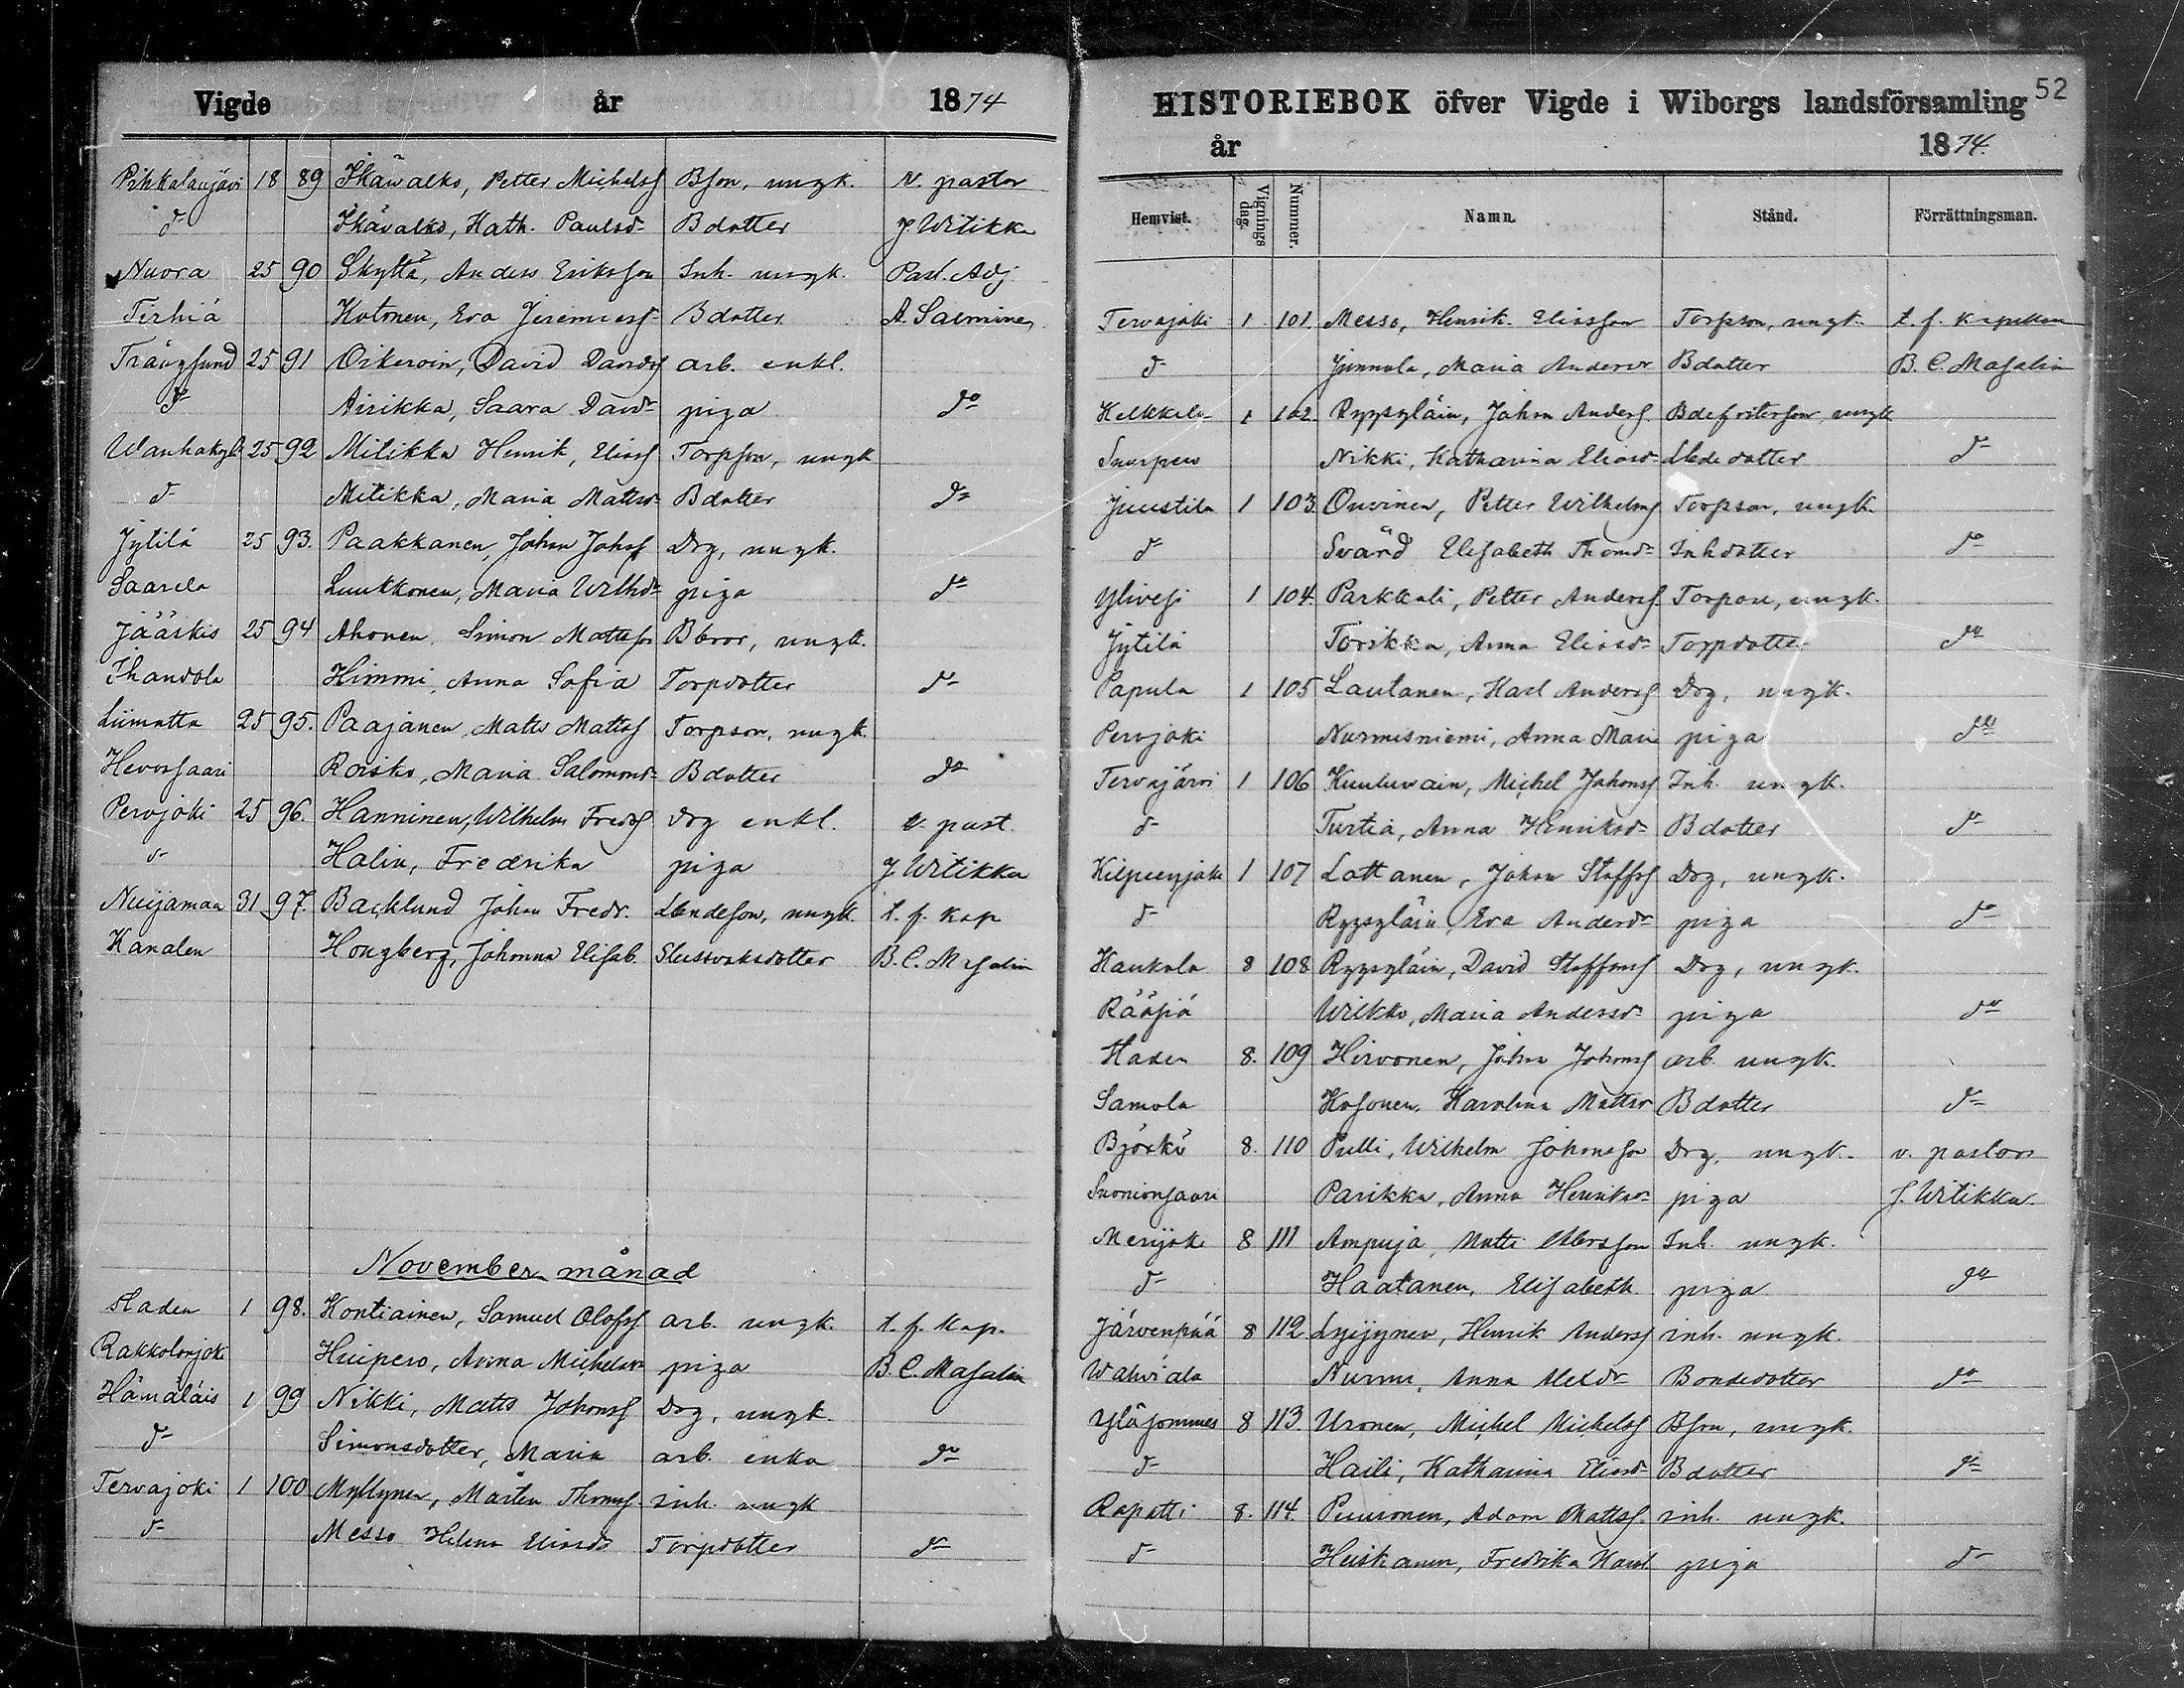 Vigde år 1874
Pihkalanjärvi 18 89 Ihävalko, Petter Michelss Bson, ungk. v. pastor
do Ihävalko, Kath. Paulsdr Bdotter J Witikka
Nuora 25 90 Skyttä, Anders Eriksson Inh. ungk. Past. Adj
Tirhiä Hotonen, Eva Jeremiasdr Bdotter A. Sarminen
Trångsund 25 91 Oikeroin, David Davids arb. enkl.
do Airikka, Saara Davdr piga do
Wanhakylä 25 92 Mitikka Henrik, Eliass Torpson, ungk
do Mitikka, Maria Mattsdr Bdotter do
Jytilä 25 93. Paakkanen, Johan Johss Drg, ungk.
Saarela Luukkonen, Maria Wilhdr piga do
Jääskis 25 94 Ahonen Simon Mattsson Bbror, ungk.
Ihandola Himmi, Anna Sofia Torpdotter do
Liimatta 25 95. Paajanen, Matts Mattss Torpson, ungk.
Hevossaari Roisko, Maria Salomonsdr Bdotter do
Perojoki 25 96. Hanninen, Wilhelm Fredss drg enkl. v. past.
do Halin, Fredrika piga J Witikka
Nuijamaa 31 97. Backlund Johan Fredr. Lbondeson, ungk t. f. kap
Kanalen Hougberg, Johanna Elisab. Slussvaktsdotter B. C. Masalin
November månad
Staden 1 98. Kontiainen, Samuel Olofss arb. ungk. t. f. kap.
Rakkolanjoki Huipero, Anna Michelsdr piga B. C. Masalin
Hämäläis 1 99 Nikki, Matts Johanss Drg, ungk.
do Simonsdotter, Maria arb. enka do
Tervajoki 1 100 Myllynen, Mårten Thomss inh. ungk
do Messo Helena Eliasdr Torpdotter do
52
HISTORIEBOK öfver Vigde i Wiborgs landsförsamling
år 1874.
Hemvist. Vignings dag. Nummer. Namn. Stånd. Förrättningsman.
Tervajoki 1 101. Messo, Henrik Eliasson Torpson, ungk. t. f. kapellan
do Junnola, Maria Andersdr Bdotter B. C. Masalin
Kelkkala 1 102. Ryypyläin, Johan Anderss. ungk
Suurpero Nikki, Katharina Eliasdr dotter do
Juustila 1 103. Ouvinen, Petter Wilhelmss Torpson, ungk.
do Svärd Elisabeth Thomdr Inhdotter do
Ylivesi 1 104. Parkkali, Petter Anderss. Torpare, ungk.
Jytilä Torikka, Anna Eliasdr Torpdotter do
Papula 1 105 Lautanen, Karl Anderss Drg, ungk.
Perojoki Nurmisniemi, Anna Maria piga do
Tervajärvi 1 106 Kuuluvain, Michel Johanss Inh. ungk.
do Turtia, Anna Henriksdr Bdotter do
Kilpeenjoki 1 107 Lattanen, Johan Staffss Drg, ungk.
do Ryypyläin, Eva Andersdr piga do
Kaukola 8 108 Ryypyläin, David Staffanss Drg, ungk.
Rääsiä Wilkko, Maria Andersdr piga do
Staden 8. 109 Hirvonen, Johan Johanss arb. ungk.
Samola Kosonen, Karolina Mattsdr Bdotter do
Björkö 8. 110 Pulli, Wilhelm Johansson Drg, ungk. v. pastor
Suonionsaari Parikka, Anna Henriksdr piga J. Witikka
Merijoki 8 111 Ampuja, Matts Inh. ungk.
do Haatanen, Elisabeth piga do
Järvenpää 8 112 Lyijynen, Henrik Anderss inh. ungk.
Wahviala Nurmi, Anna Alexdr Bondedotter do
Yläsommee 8 113. Uronen, Michel Michelss Bson, ungk.
do Haili, Katharina Eliasdr Bdotter do
Rapatti 8. 114. Puuronen, Adam Mattss. inh. ungk.
do Heiskanen, Fredrika Karol. piga do